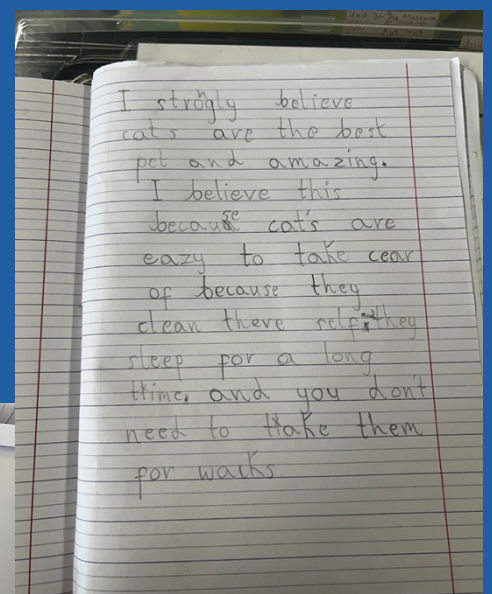 I strongly believe
cats are the best
pet and amazing.
I believe this
because cat's are
eazy to take cear
of because they
clean there self and they
sleep for a long
time. and you don't
need to take them
for walks.